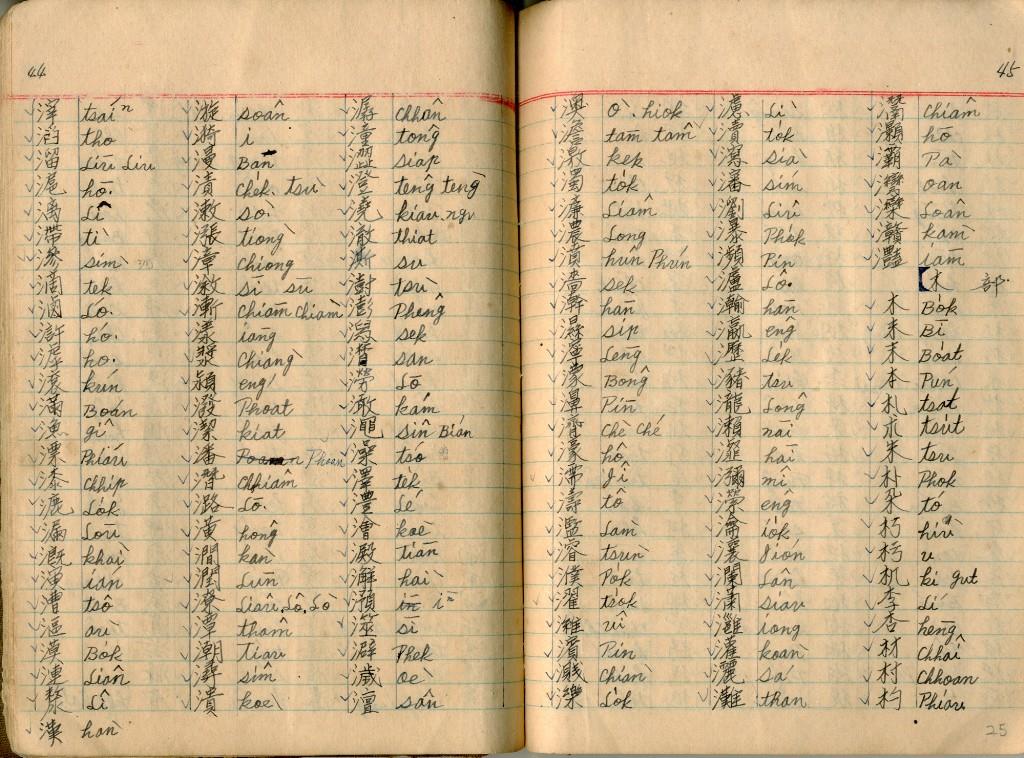 44
滓 tsáiⁿ
滔 tho
溜 Liū Liu
滬 hō͘
漓 Lî
滯 tì
滲 sìm
滴 tek
滷 Ló͘
滸 hó͘
滹 ho͘
滾 kún
滿 Boán
漁 gî
漂 Phiáu
漆 chhip
漉 Lo̍k
漏 Lōu
溉 khài
演 ián
漕 tsô
漚 àu
漠 Bo̍k
連 Liân
漦 Lî
漢 hàn
漩 soân
漪 i
漫 Bān
漬 chek. tsù
漱 sò͘
漲 tiòng
漳 chiong
漱 si sū
漸 chiām Chiam
漾 iāng
漿 Chiang
潁 éng
潑 Phoat
潔 kiat
潘 Phoan
潛 Chhiâm
潞 Lō͘
潢 hông
澗 kàn
潤 Lūn
潦 Liáu. Lô. Lò
潭 thâm
潮 Tiâu
潯 sîm
潰 koè
潺 chhân
潼 tông
澀 siap
澄 têng tèng
澆 kiau. ngv
澈 thiat
澌 su
澍 tsù
澎 Phêng
潟 sek
潸 san
澇 Lō
澉 kám
澠 sîn Bián
澡 tsó
澤 te̍k
澧 Lé
澮 koè
澱 tiān
澥 hài
澦 īⁿ
澨 sī
澼 Phek
濊 oè
澶 sân
45
澳 ò. hiok
澹 tam tâm
激 kek
濁 to̍k
濂 Liâm
濃 Long
濆 hûn Phún
濇 sek
澣 hān
濕 sip
濘 Lēng
濛 Bông
濞 Pīn
濟 Chè Ché
濠 hô
濡 Jî
濤 tô
濫 Lām
濬 tsùn
濮 Po̍k
濯 tso̍k
濰 uî
濱 Pin
濺 Chiàn
濼 Lo̍k
濾 Lī
瀆 to̍k
瀉 sià
瀋 sím
瀏 Liû
瀑 Pho̍k
瀕 Pin
瀘 Lô͘
瀚 hān
瀛 êng
瀝 Le̍k
瀦 tsu
瀧 Lông
瀨 nāi
瀣 hāi
瀰 mî
瀠 êng
瀹 io̍k
瀼 Jióng
瀾 Lân
瀟 siau
灉 iong
灌 koàn
灑 sá
灘 than
灊 Chiâm
灝 hō
灞 Pà
灣 oan
灤 Loân
灨 kàm
灩 iām
木 部
木 Bo̍k
未 Bī
末 Boa̍t
本 Pún
札 tsat
朮 tsu̍t
朱 tsu
朴 Phok
朵 tó
朽 hiú
杇 u
机 ki gut
李 Lí
杏 hēng
材 Chhâi
村 Chhoan
杓 Phiau
25